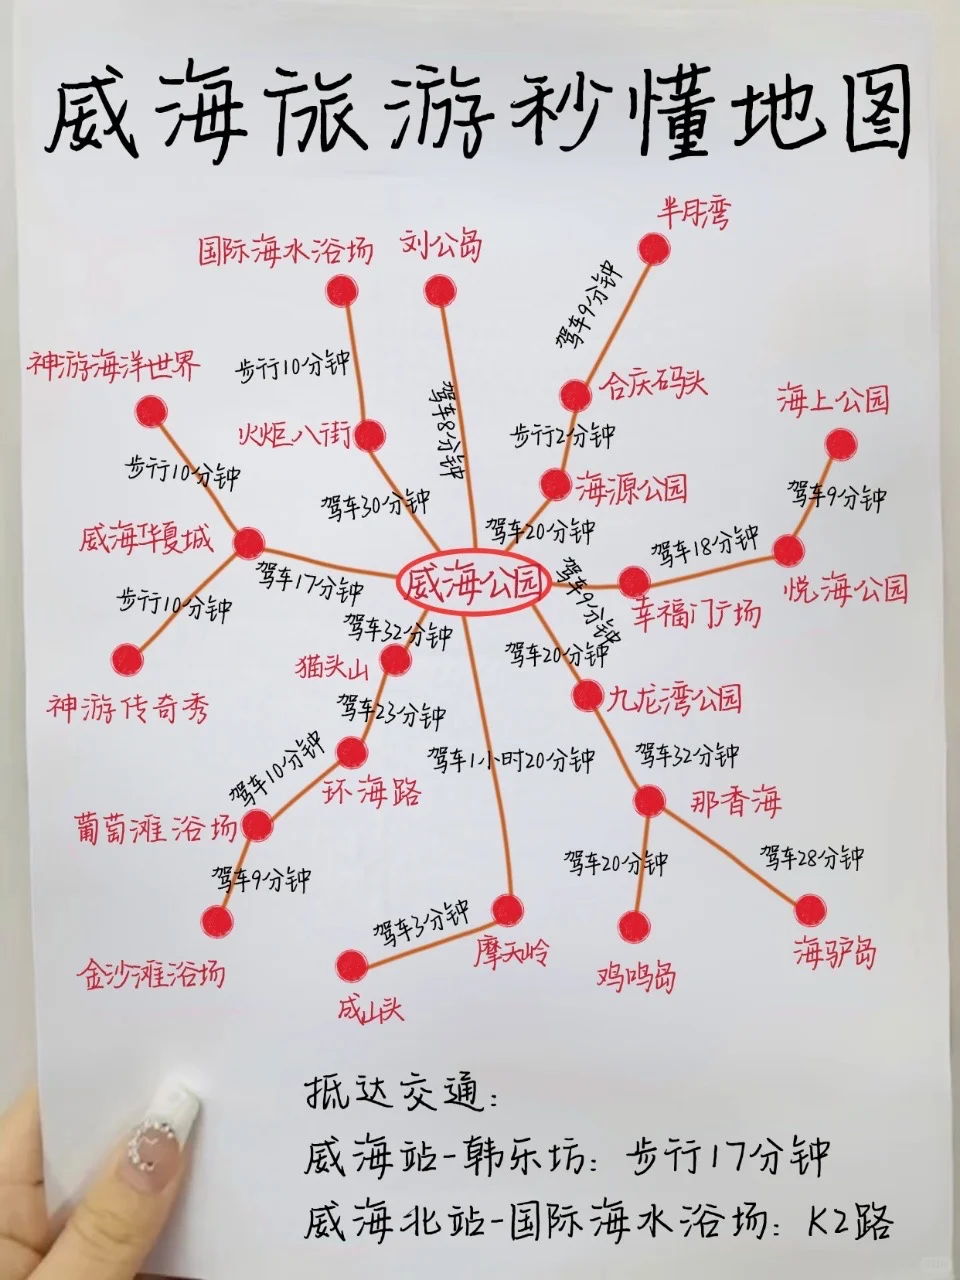 威海旅游秒懂地图
半月湾
国际海水浴场
刘公岛
驾车9分钟
神游海洋世界
步行10分钟
合庆码头
海上公园
火炬八街
驾车8分钟
步行2分钟
步行10分钟
海源公园
驾车9分钟
驾车30分钟
威海华夏城
驾车20分钟
驾车18分钟
驾车17分钟
威海公园
驾车9分钟
幸福门广场
悦海公园
步行10分钟
驾车32分钟
猫头山
驾车20分钟
神游传奇秀
九龙湾公园
驾车23分钟
驾车10分钟
驾车1小时20分钟
驾车32分钟
环海路
那香海
葡萄滩浴场
驾车9分钟
驾车20分钟
驾车28分钟
驾车3分钟
金沙滩浴场
摩天岭
鸡鸣岛
海驴岛
成山头
抵达交通:
威海站-韩乐坊: 步行17分钟
威海北站-国际海水浴场: K2路